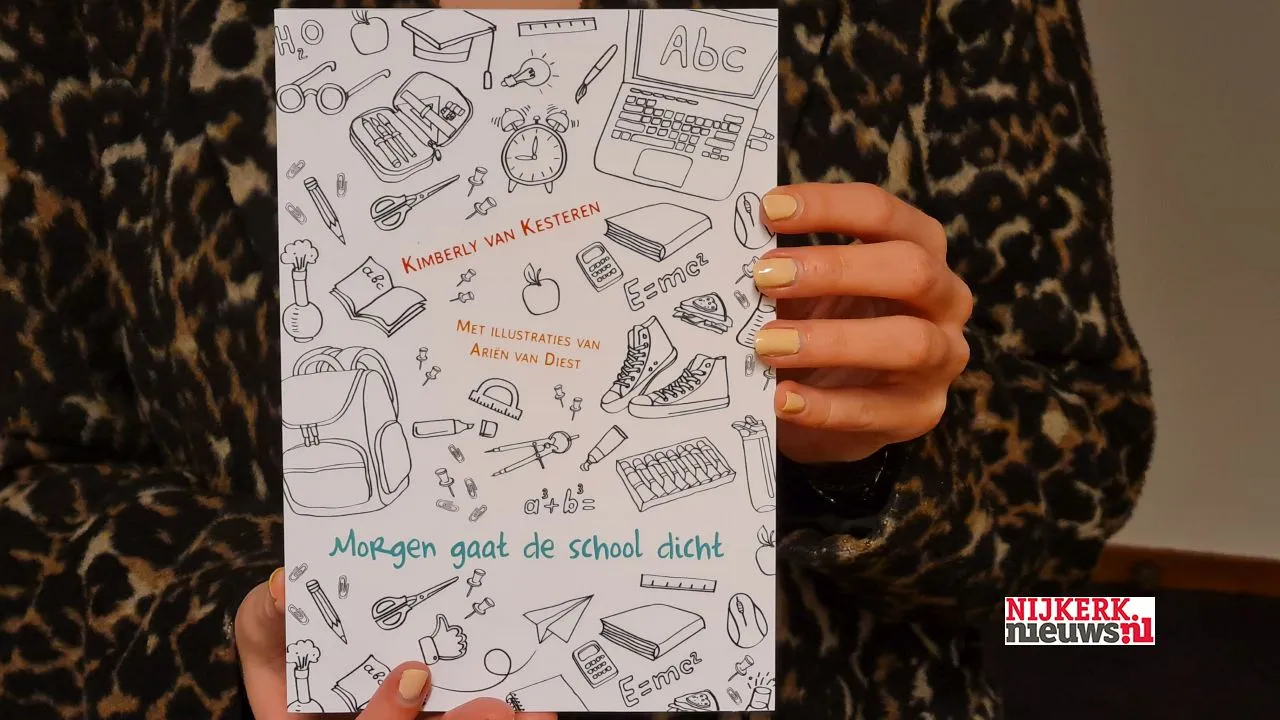 H₂O
Abc
Kimberly van Kesteren
abc
E=mc²
Met illustraties van
Ariën van Diest
a³+b³=
Morgen gaat de school dicht
abc
E=mc²
NIJKERK
nieuws.nl